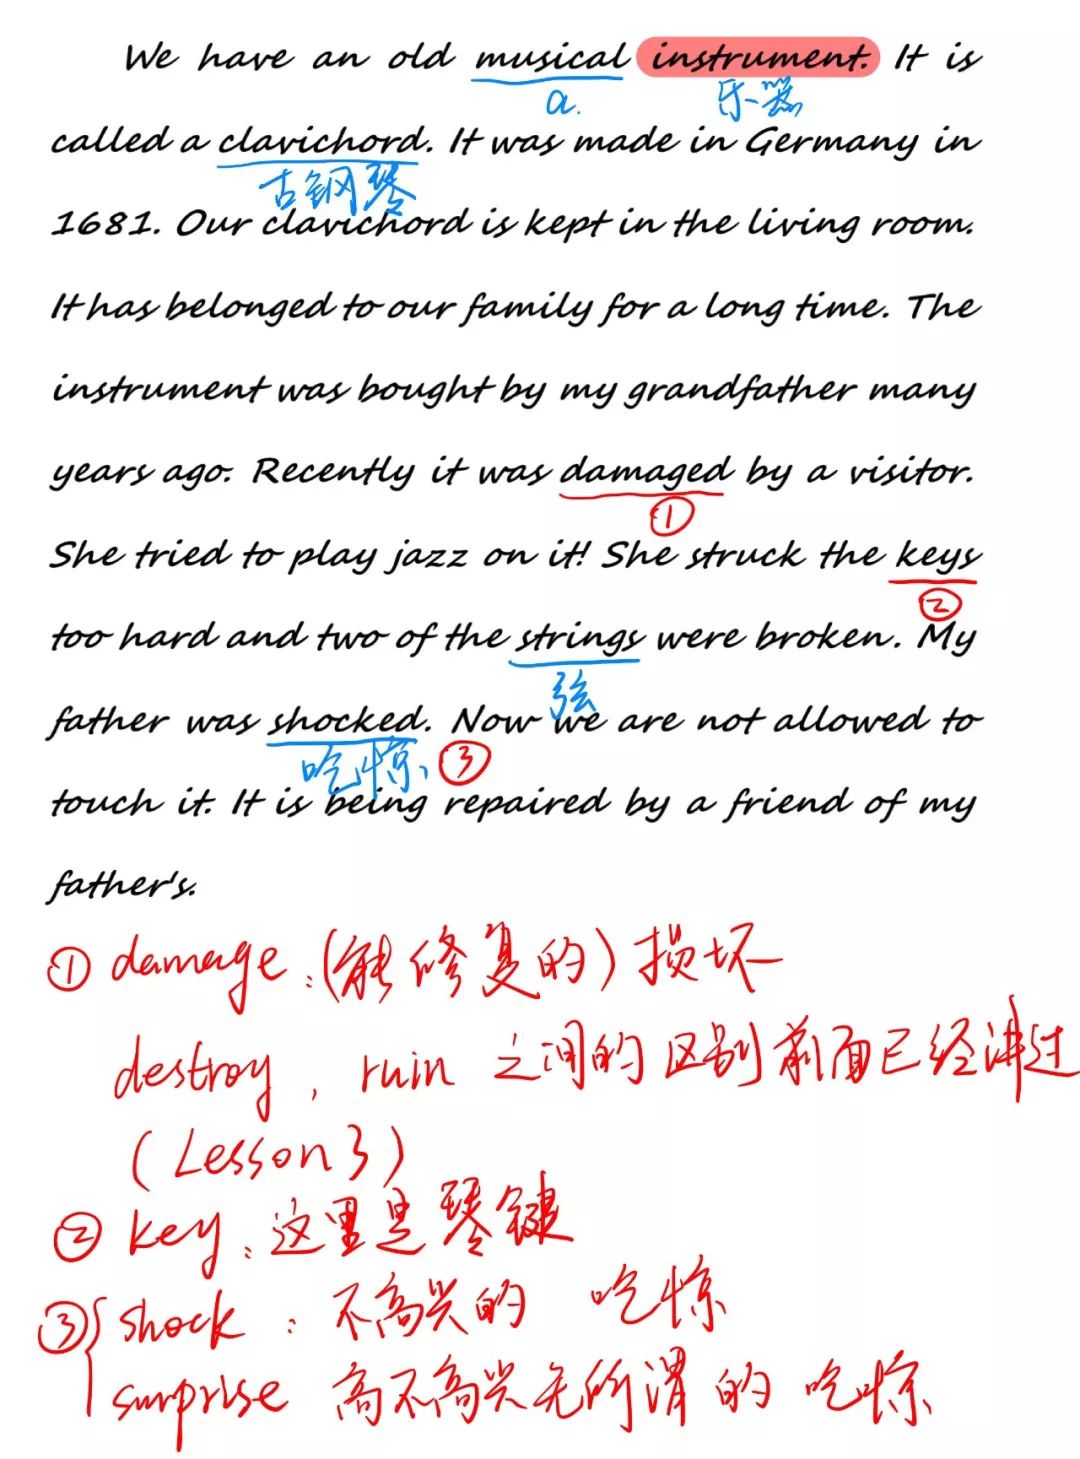 We have an old musical instrument. It is
a. 乐器
called a clavichord. It was made in Germany in
古钢琴
1681. Our clavichord is kept in the living room.
It has belonged to our family for a long time. The
instrument was bought by my grandfather many
years ago. Recently it was damaged by a visitor.
①
She tried to play jazz on it! She struck the keys
②
too hard and two of the strings were broken. My
弦
father was shocked. Now we are not allowed to
吃惊、 ③
touch it. It is being repaired by a friend of my
father's.
① damage:(能修复的)损坏
destroy, ruin 之间的区别前面已经讲过
(Lesson 3)
② key:这里是琴键
③ shock : 不高兴的 吃惊
surprise 高不高兴无所谓的 吃惊